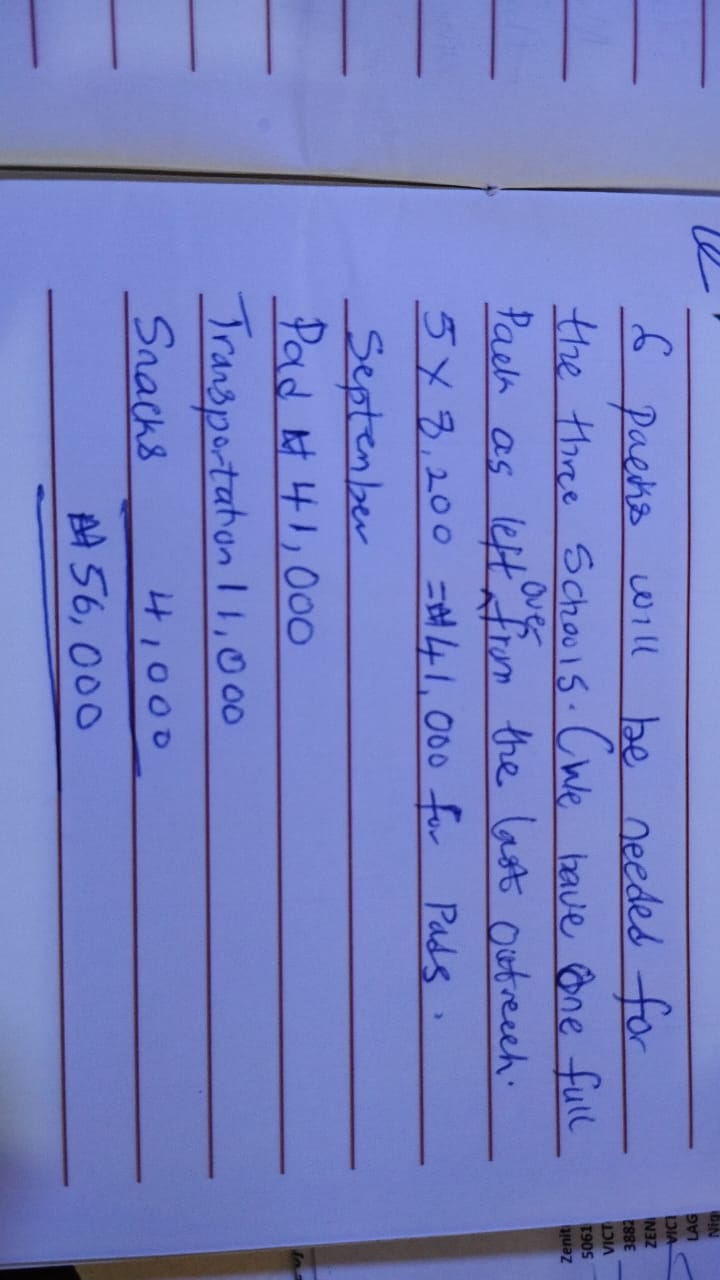 6 packs will be needed for
the three schools. (We have one full
Pack as left over from the last outreach.
5 X 8,200 = ₦41,000 for Pads.
September
Pad ₦41,000
Transportation 11,000
Snacks 4,000
₦56,000
Nig
LAG
VICT
ZENI
3882
VICT
5061
zenit